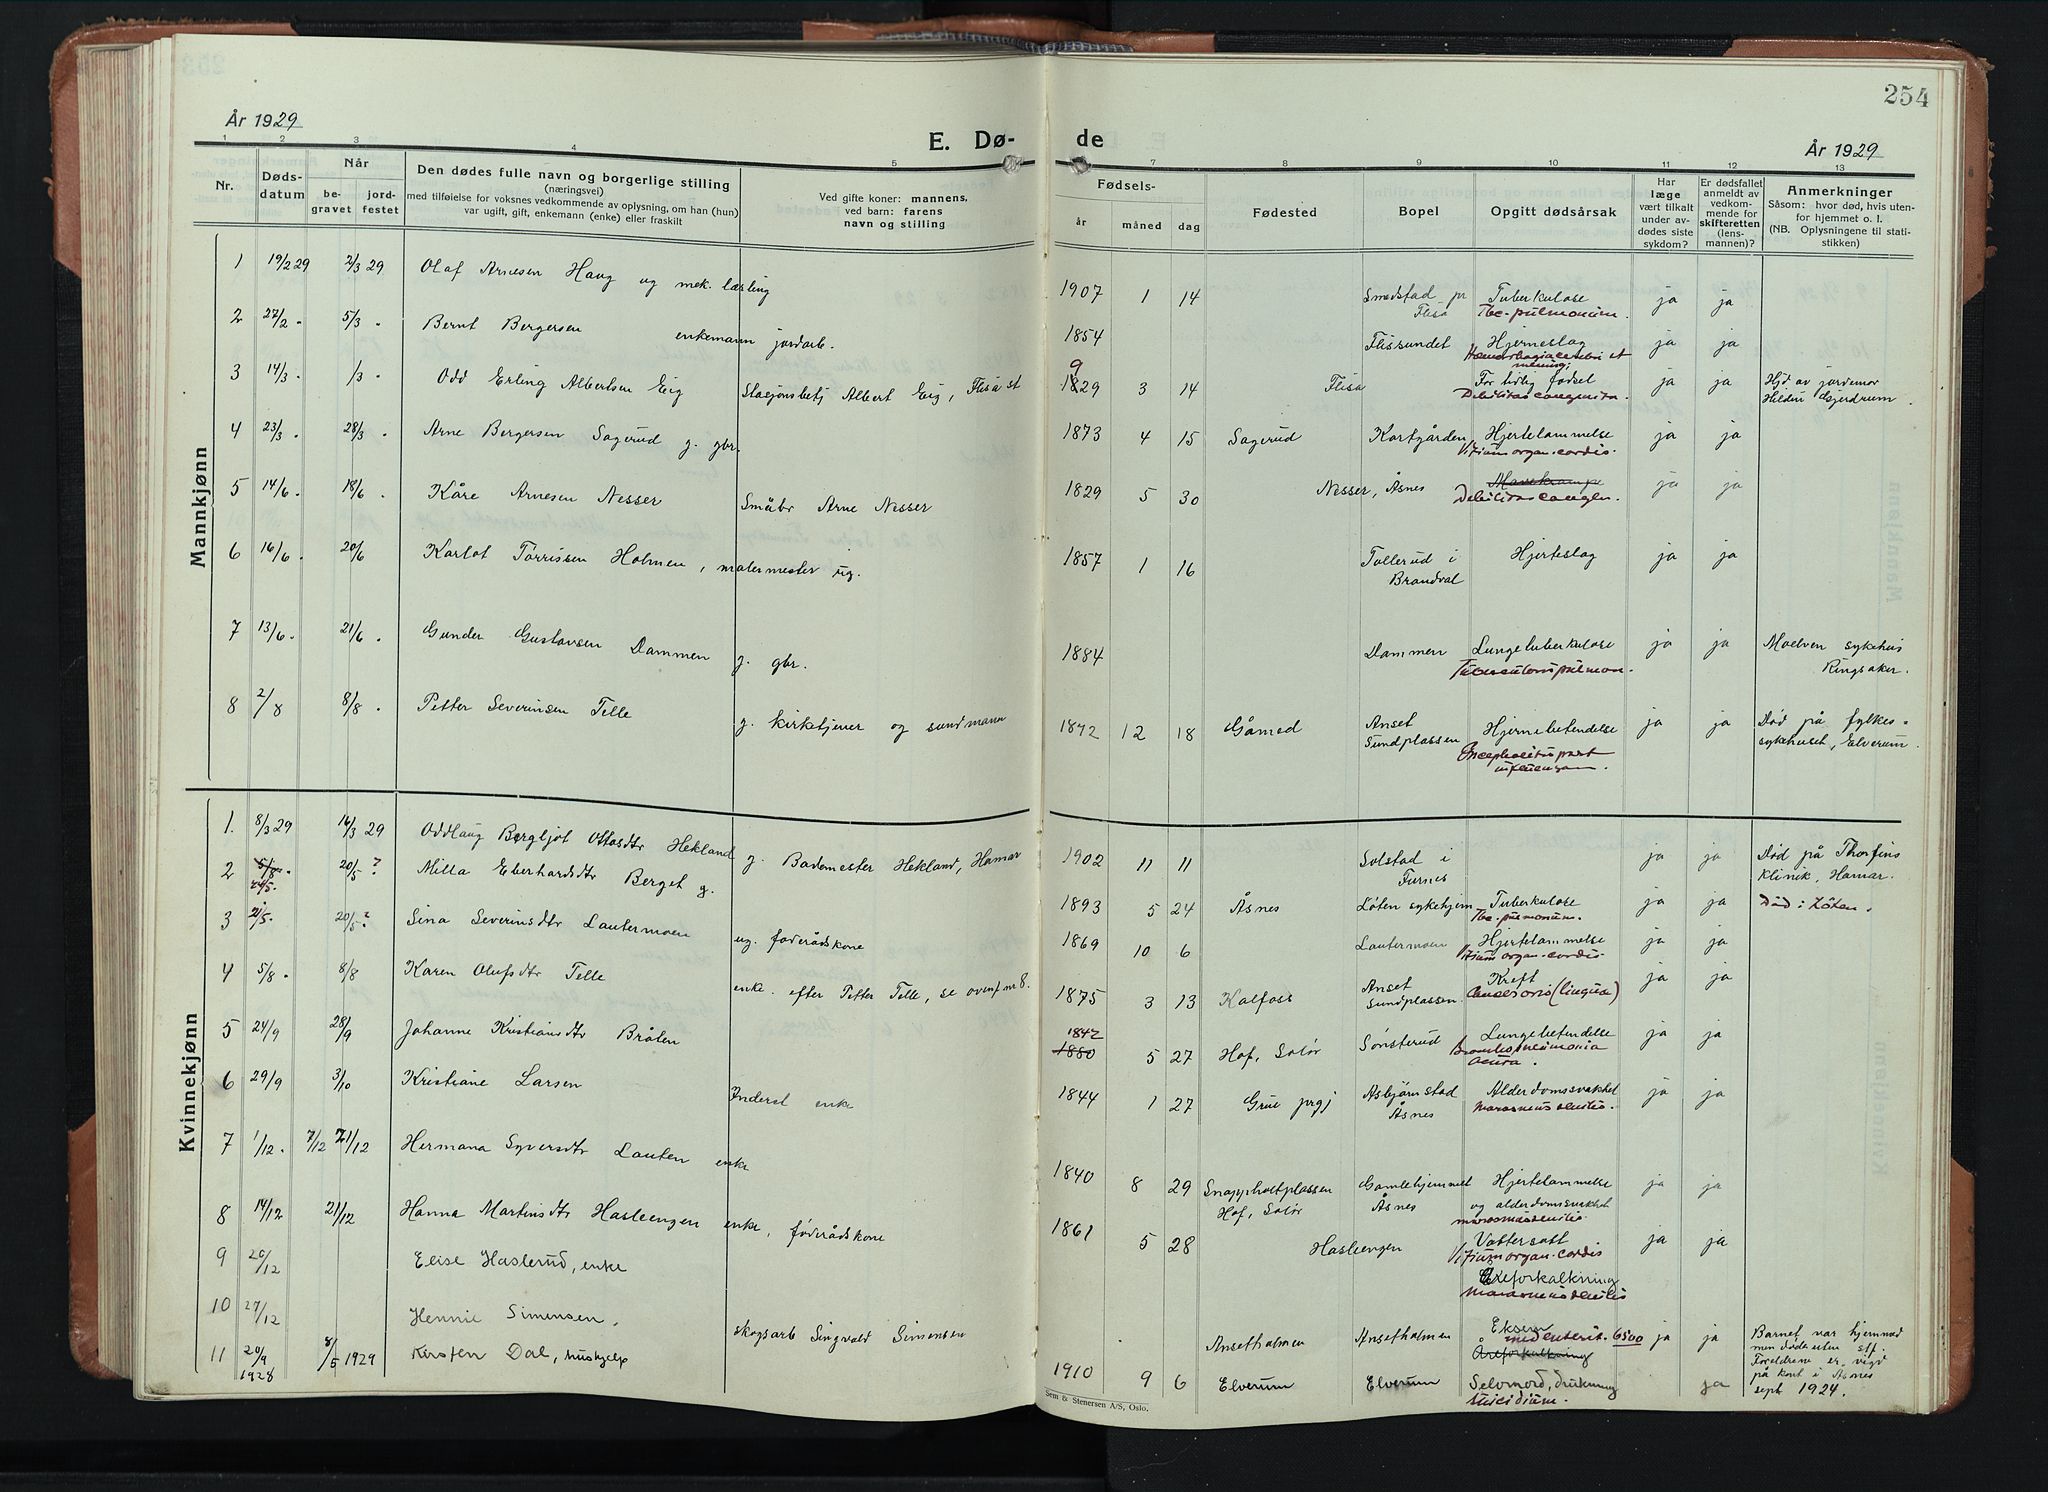 254
År 1929
E. Dø-
de
År 1929
1 2 3 4 5 7 8 9 10 11 12 13
Nr.
Døds-
datum
Når
be-
gravet
jord-
festet
Den dødes fulle navn og borgerlige stilling
(næringsvei)
med tilføielse for voksnes vedkommende av oplysning, om han (hun)
var ugift, gift, enkemann (enke) eller fraskilt
Ved gifte koner: mannens,
ved barn: farens
navn og stilling
Fødsels-
år måned dag
Fødested
Bopel
Opgitt dødsårsak
Har
læge
vært tilkalt
under av-
dødes siste
sykdom?
Er dødsfallet
anmeldt av
vedkom-
mende for
skifteretten
(lens-
mannen)?
Anmerkninger
Såsom: hvor død, hvis uten-
for hjemmet o. l.
(NB. Oplysningene til stati-
stikken)
Mannkjønn
1 19/2 29 2/3 29 Olaf Arnesen Haug ug mek. lærling 1907 1 14 Smedstad pr Flisa Tuberkulose Tbc. pulmonum. ja ja
2 27/2 . 5/3 . Bernt Bergersen enkemann jordarb. 1854 Flissundet Hjerneslag Hæmorhagia cerebri et mening. ja ja
3 14/3 . /3 . Odd Erling Albertsen Eig Stasjonsbetj Albert Eig, Flisa st 1829 9 3 14 Flisa For tidlig fødsel Debilitas congenita. ja ja Hjd av jordemor Hildur Gjerdrum.
4 23/3 . 28/3 . Arne Bergersen Sagerud g. gbr. 1873 4 15 Sagerud Kortgården Hjertelammelse Vitium organ. cordis. ja ja
5 14/6 . 18/6 . Kåre Arnesen Nesser Småbr Arne Nesser 1829 5 30 Nesser, Åsnes Mavekrampe Debilitas congen. ja ja
6 16/6 . 20/6 Karlot Tørrissen Holmen, malermester ug. 1857 1 16 Tollerud i Brandval Hjerteslag ja ja
7 13/6 . 21/6 . Gunder Gustavsen Dammen g. gbr. 1884 Dammen Lungetuberkulose Tuberculosis pulmon. ja ja Moelven sykehus Ringsaker.
8 2/8 8/8 . Petter Severinsen Telle g. kirketjener og sundmann 1872 12 18 Gåmed Anset Sundplassen Hjernebetendelse Encephalitis post influenzam. ja ja Død på fylkes= sykehuset, Elverum.
Kvinnekjønn
1. 8/3 29 16/3 29 Oddlaug Bergljot Ottosdtr Hekland g. Bademester Hekland, Hamar 1902 11 11 Solstad i Furnes ja ja Død på Thorfins Klinik, Hamar.
2 5/8 . 24/5. 20/5 ? Milla Eberhardsdtr Berget g. 1893 5 24 Åsnes Løten sykehjem Tuberkulose Tbc. pulmonum. ja ja Død i Løten.
3 21/5. 20/5 ? Sina Severinsdtr Lautermoen ug. føderådskone 1869 10 6 Lautermoen Hjertelammelse Vitium organ. cordis. ja ja
4 5/8 . 8/8 Karen Olufsdtr Telle enke. efter Petter Telle, se ovenf nr 8. 1875 3 13 Kalfoss Anset sundplassen Kreft Cancer oris (linguæ) ja ja
5 24/9 28/9 Johanne Kristiansdtr Bråten 1842 1880 5 27 Hof, Solør Sønsterud Lungebetendelse Bronchopneumonia acuta. ja ja
6 29/9 3/10 Kristiane Larsen Inderst enke 1844 1 27 Grue prgj Asbjørnstad Åsnes Alderdomssvakhet Marasmus senilis. ja ja
7 1/12. 7/12 21/12 Hermana Syversdtr Lauten enke 1840 8 29 Snappholtplassen Hof, Solør Gamlehjemmet Åsnes Hjertelammelse og alderdomssvakhet marasmus senilis. ja ja
8 14/12 21/12 Hanna Martinsdtr Hasleengen enke, føderådskone 1861 5 28 Hasleengen Vattersott Vitium organ. cordis ja ja
9 20/12 Elise Haslerud, enke Åreforkalkning Marasmus senilis
10 27/12 Hennie Simensen. skogsarb Singvald Simensen Ansetholmen Ansetholmen Eksem med enterit. 6500 Åreforkalkning ja ja Barnet var hjemmed men døde uten stf. Foreldrene er vigd på kont i Åsnes sept 1924.
11 20/9 1928 8/5 1929 Kirsten Dal, hushjelp 1910 9 6 Elverum Elverum Selvmord, drukning Suicidium. ja
Sem & Stenersen A/S, Oslo.